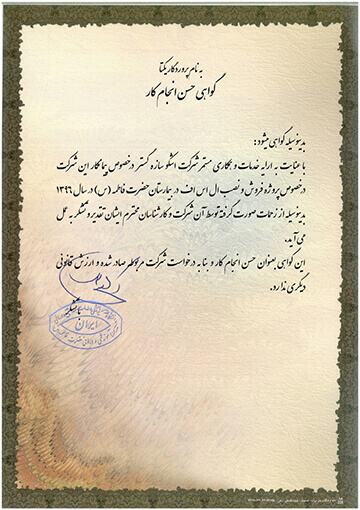 به نام پروردگار یکتا
گواهی حسن انجام کار
بدینوسیله گواهی میشود :
با عنایت به ارایه خدمات و همکاری مستمر شرکت اشکو سازه گستر در خصوص پیمانکار این شرکت
در خصوص پروژه فروش و نصب ال اس اف در بیمارستان حضرت فاطمه (س) در سال ۱۳۹۶
بدینوسیله از زحمات صورت گرفته توسط آن شرکت و کارشناسان محترم ایشان تقدیر و تشکر به عمل
می آید.
این گواهی بعنوان حسن انجام کار و بنا به درخواست شرکت مربوطه صادر شده و ارزش قانونی
دیگری ندارد.
ایران